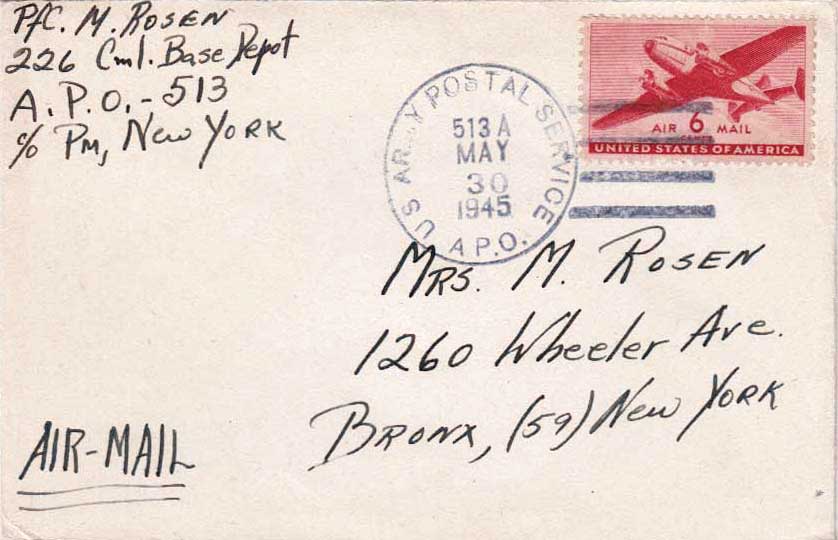 Pfc. M. ROSEN
226 Cml. Base Depot
A.P.O.-513
c/o PM, New YORK
U S ARMY POSTAL SERVICE
513 A
MAY
30
1945
A.P.O.
AIR 6 MAIL
CENTS
UNITED STATES OF AMERICA
MRS. M. ROSEN
1260 Wheeler Ave.
BRONX, (59) New YORK
AIR-MAIL